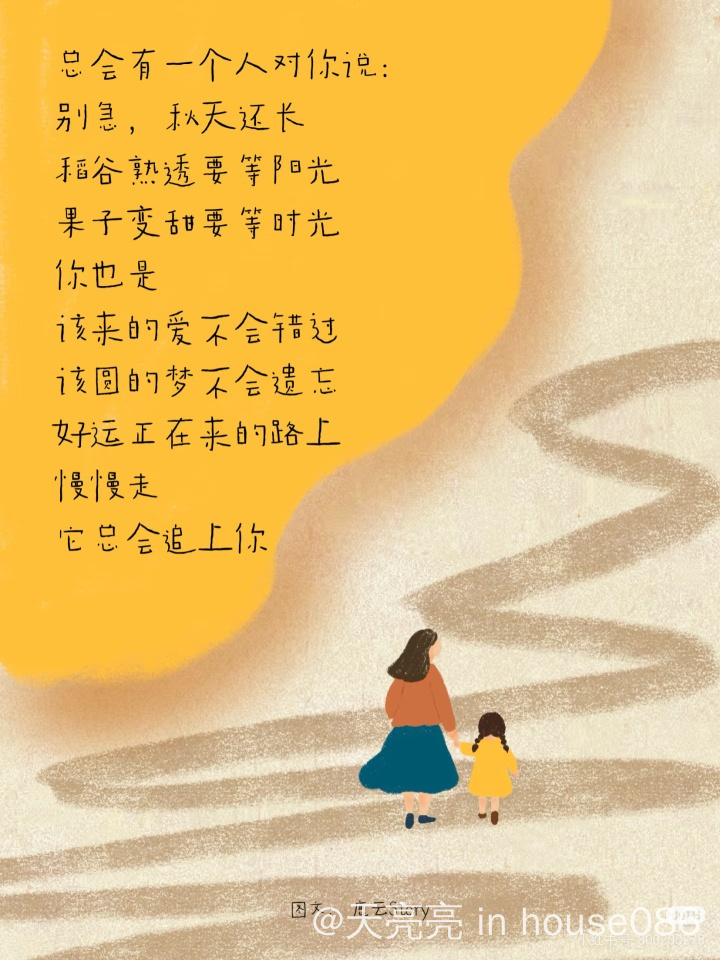 总会有一个人对你说：
别急，秋天还长
稻谷熟透要等阳光
果子变甜要等时光
你也是
该来的爱不会错过
该圆的梦不会遗忘
好运正在来的路上
慢慢走
它总会追上你
图文 云Story
@天亮亮 in house086